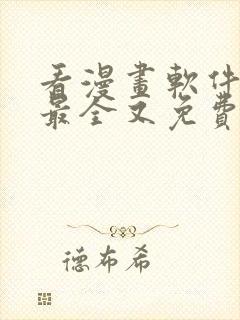 看漫畫軟件
最全又免費
德布希